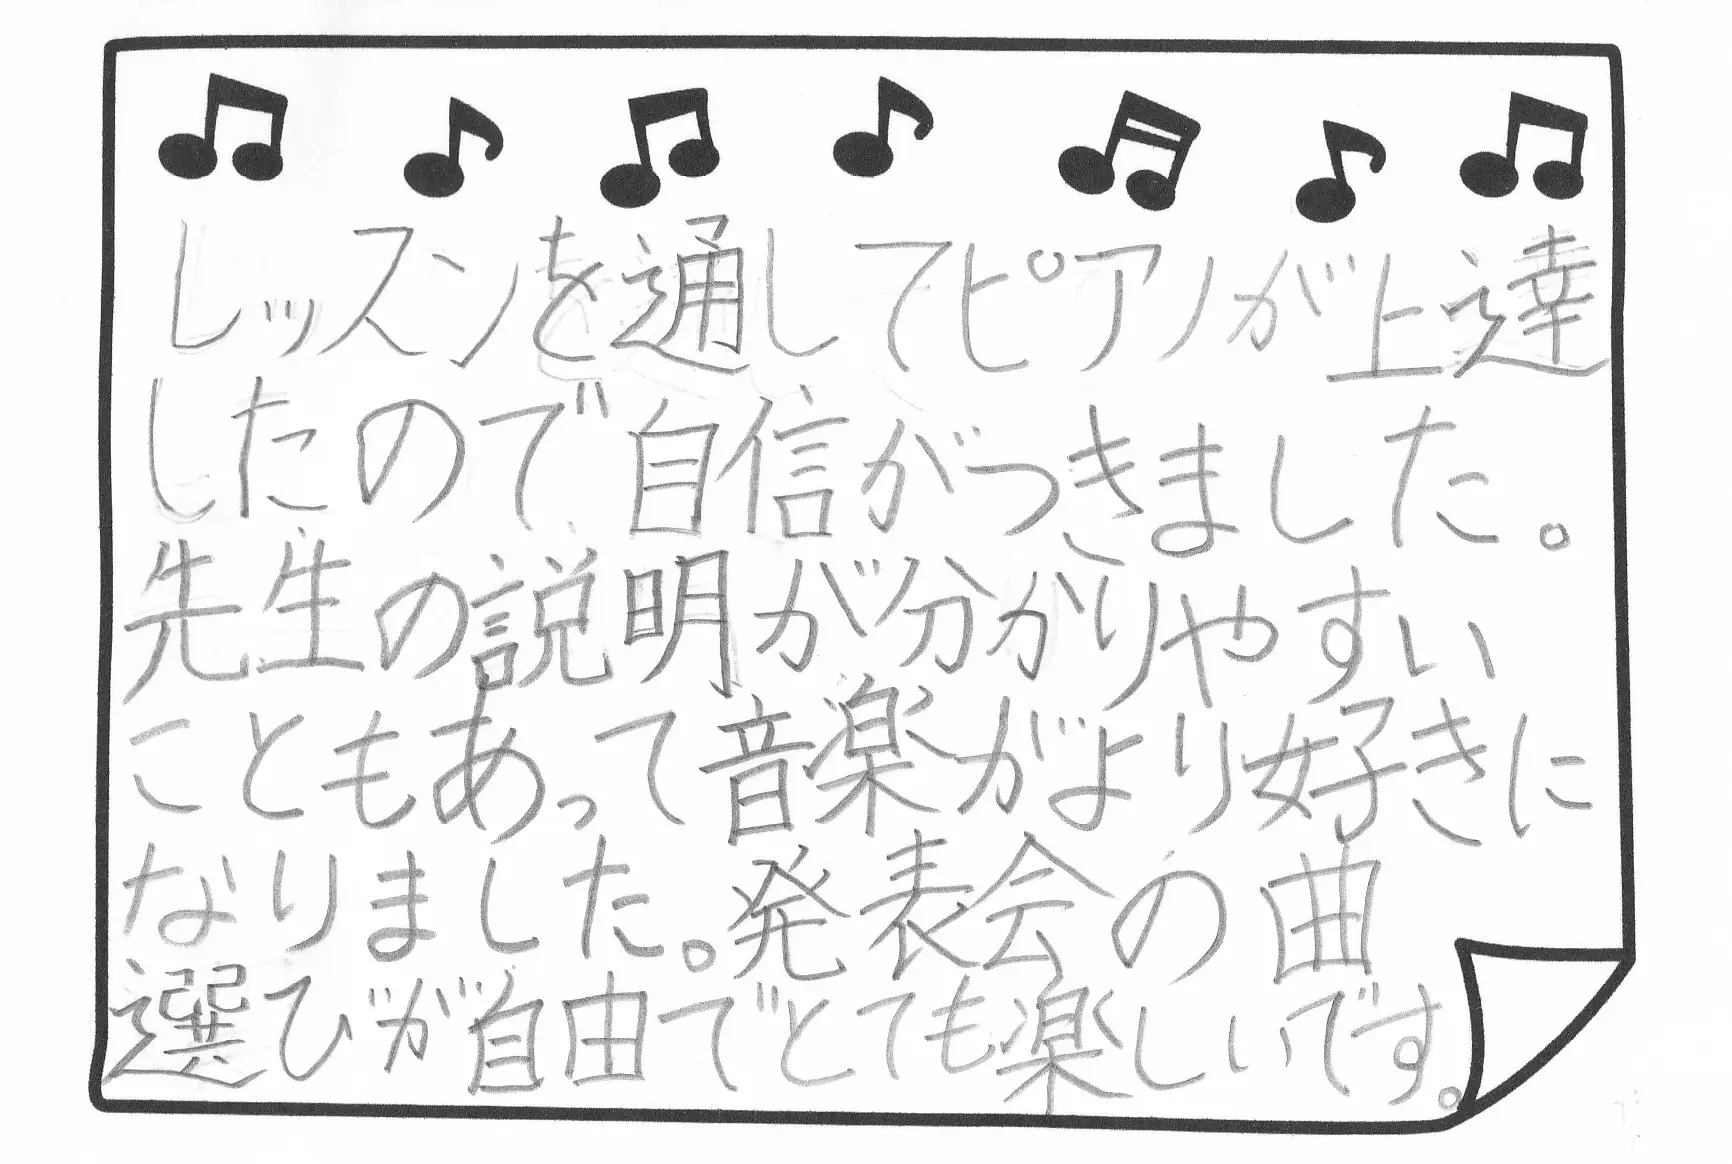 レッスンを通してピアノが上達
したので自信がつきました。
先生の説明が分かりやすい
こともあって音楽がより好きに
なりました。発表会の曲
選びが自由でとても楽しいです。